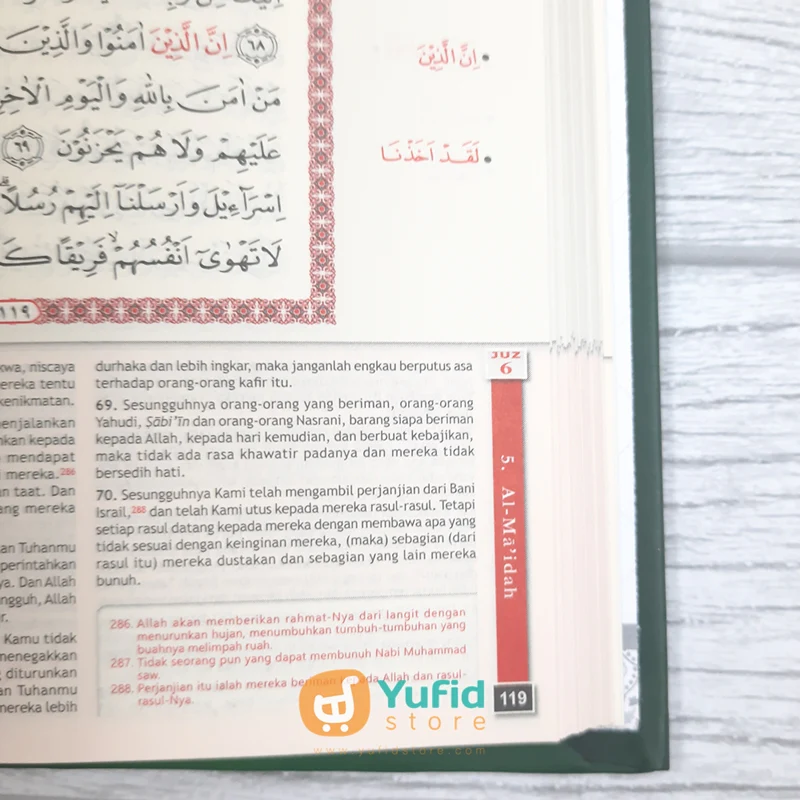 ٦٨ اِنَّ الَّذِيْنَ اٰمَنُوْا وَالَّذِيْنَ
مَنْ اٰمَنَ بِاللّٰهِ وَالْيَوْمِ الْاٰخِرِ
عَلَيْهِمْ وَلَا هُمْ يَحْزَنُوْنَ ٦٩
اِسْرَاۤءِيْلَ وَاَرْسَلْنَآ اِلَيْهِمْ رُسُلًا
لَا تَهْوٰىٓ اَنْفُسُهُمْۙ فَرِيْقًا
١١٩
• اِنَّ الَّذِيْنَ
• لَقَدْ اَخَذْنَا
kwa, niscaya
ereka tentu
kenikmatan.
enjalankan
nkan kepada
mendapat
mereka.286
n taat. Dan
ang mereka
an Tuhanmu
perintahkan
ya. Dan Allah
ngguh, Allah
r.
Kamu tidak
menegakkan
diturunkan
an Tuhanmu
mereka lebih
durhaka dan lebih ingkar, maka janganlah engkau berputus asa
terhadap orang-orang kafir itu.
69. Sesungguhnya orang-orang yang beriman, orang-orang
Yahudi, Ṣābi'īn dan orang-orang Nasrani, barang siapa beriman
kepada Allah, kepada hari kemudian, dan berbuat kebajikan,
maka tidak ada rasa khawatir padanya dan mereka tidak
bersedih hati.
70. Sesungguhnya Kami telah mengambil perjanjian dari Bani
Israil,288 dan telah Kami utus kepada mereka rasul-rasul. Tetapi
setiap rasul datang kepada mereka dengan membawa apa yang
tidak sesuai dengan keinginan mereka, (maka) sebagian (dari
rasul itu) mereka dustakan dan sebagian yang lain mereka
bunuh.
286. Allah akan memberikan rahmat-Nya dari langit dengan
menurunkan hujan, menumbuhkan tumbuh-tumbuhan yang
buahnya melimpah ruah.
287. Tidak seorang pun yang dapat membunuh Nabi Muhammad
saw.
288. Perjanjian itu ialah mereka beriman kepada Allah dan rasul-
rasul-Nya.
JUZ
6
5. Al-Mā'idah
119
Yufid
store
www.yufidstore.com